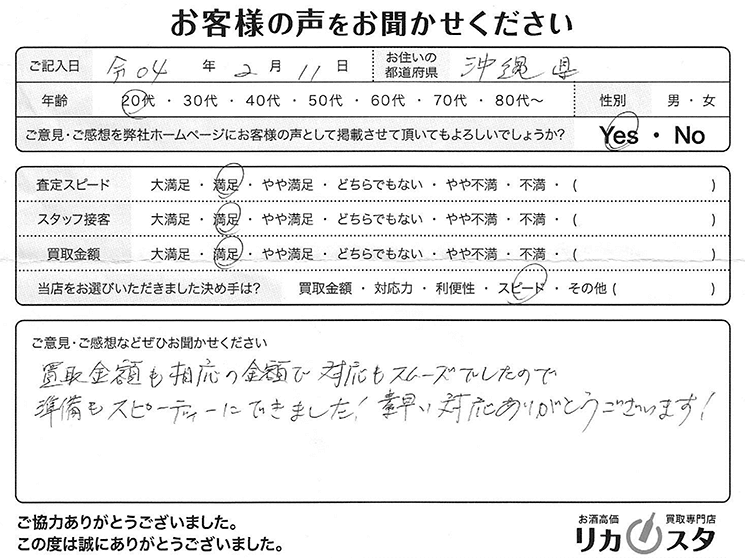 お客様の声をお聞かせください
ご記入日 令04 年 2 月 11 日 お住いの都道府県 沖縄県
年齢 20代 ・ 30代 ・ 40代 ・ 50代 ・ 60代 ・ 70代 ・ 80代〜 性別 男 ・ 女
ご意見・ご感想を弊社ホームページにお客様の声として掲載させて頂いてもよろしいでしょうか? Yes ・ No
査定スピード 大満足 ・ 満足 ・ やや満足 ・ どちらでもない ・ やや不満 ・ 不満 ・ ( )
スタッフ接客 大満足 ・ 満足 ・ やや満足 ・ どちらでもない ・ やや不満 ・ 不満 ・ ( )
買取金額 大満足 ・ 満足 ・ やや満足 ・ どちらでもない ・ やや不満 ・ 不満 ・ ( )
当店をお選びいただきました決め手は? 買取金額 ・ 対応力 ・ 利便性 ・ スピード ・ その他 ( )
ご意見・ご感想などぜひお聞かせください
買取金額も相応の金額で対応もスムーズでしたので
準備もスピーディーにできました! 素早い対応ありがとうございます!
ご協力ありがとうございました。
この度は誠にありがとうございました。
お酒高価 買取専門店
リカスタ